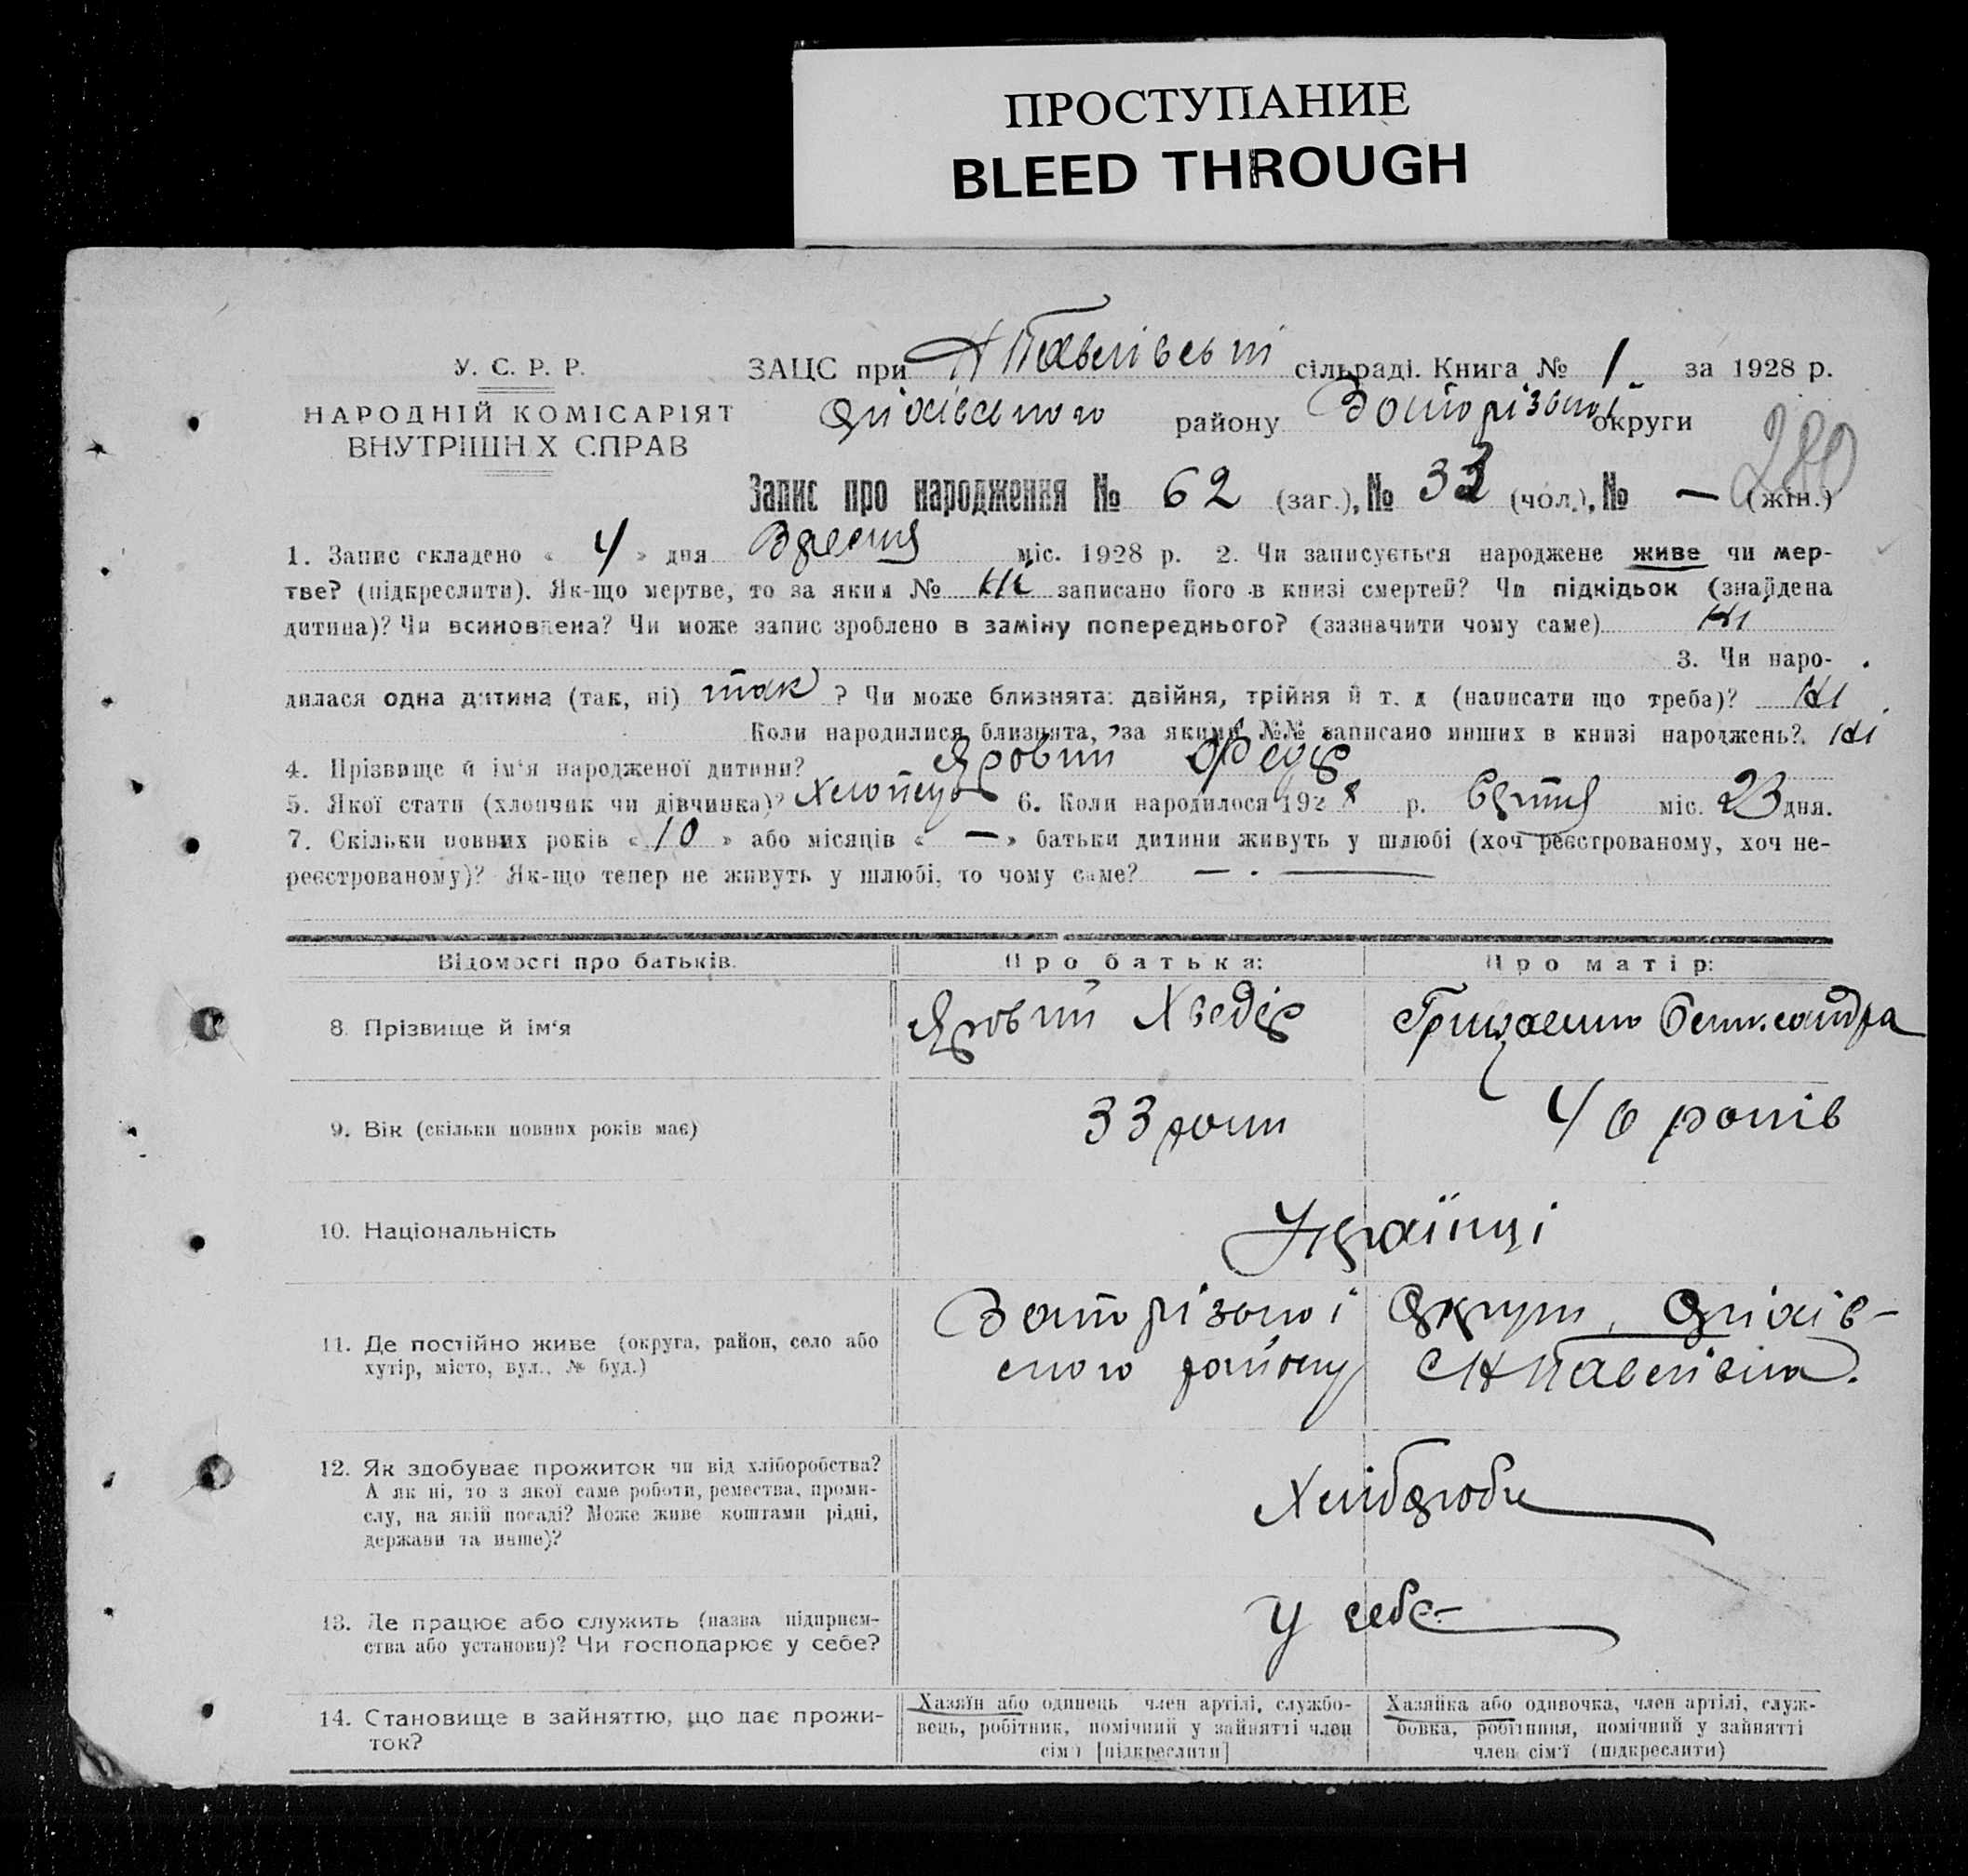 ПРОСТУПАНИЕ
BLEED THROUGH
У. С. Р. Р.
НАРОДНІЙ КОМІСАРІЯТ
ВНУТРІШН Х СПРАВ
ЗАЦС при Н Павлівські сільраді. Книга № 1. за 1928 р.
Оріхівського району Запорізької округи
280
Запис про народження № 62 (заг.), № 33 (чол.), № — (жін.)
1. Запис складено « 4 » дня Вресня міс. 1928 р. 2. Чи записується народжене живе чи мер-
тве? (підкреслити). Як-що мертве, то за яким № Ні записано його в книзі смертей? Чи підкідьок (знайдена
дитина)? Чи всиновлена? Чи може запис зроблено в заміну попереднього? (зазначити чому саме) Ні
3. Чи наро-
дилася одна дитина (так, ні) так ? Чи може близнята: двійня, трійня й т. д (написати що треба)? Ні
Коли народилися близнята, за якими №№ записано инших в книзі народжень? Ні
4. Прізвище й ім'я народженої дитини? Яровий Федір
5. Якої стати (хлопчик чи дівчинка)? Хлопець 6. Коли народилося 1928 р. Серпня міс. 23 дня.
7. Скільки повних років « 10 » або місяців « — » батьки дитини живуть у шлюбі (хоч реєстрованому, хоч не-
реєстрованому)? Як-що тепер не живуть у шлюбі, то чому саме? — . —
Відомості про батьків. Про батька: Про матір:
8. Прізвище й ім'я Яровий Хведір Грицаенко Олександра
9. Вік (скільки повних років має) 33 роки 40 років
10. Національність Українці
11. Де постійно живе (округа, район, село або Запорізької Округи, Оріхів-
хутір, місто, вул., № буд.) ського району с Н Павлівка.
12. Як здобуває прожиток чи від хліборобства?
А як ні, то з якої саме роботи, ремества, проми-
слу, на якій посаді? Може живе коштами рідні, Хлібороби
держави та инше)?
13. Де працює або служить (назва підприєм-
ства або установи)? Чи господарює у себе? У себе
14. Становище в зайняттю, що дає прожи-
ток?
Хазяїн або одинець член артілі, службо-
вець, робітник, помічний у зайнятті член
сім'ї [підкреслити]
Хазяйка або одиночка, член артілі, служ-
бовка, робітниця, помічний у зайнятті
член сім'ї (підкреслити)